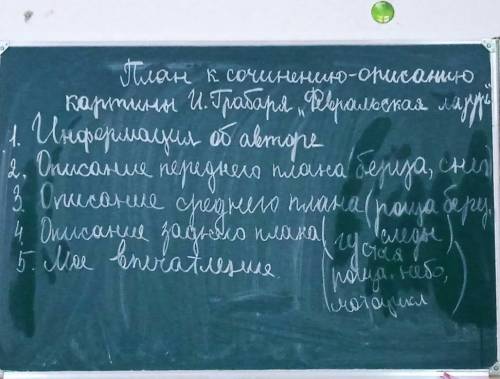 План к сочинению-описанию
картины И. Грабаря „Февральская лазурь"
1. Информация об авторе
2. Описание переднего плана (береза, снег)
3. Описание среднего плана (роща берез,
4. Описание заднего плана ( следы )
5. Мое впечатление. (густая
роща, небо,